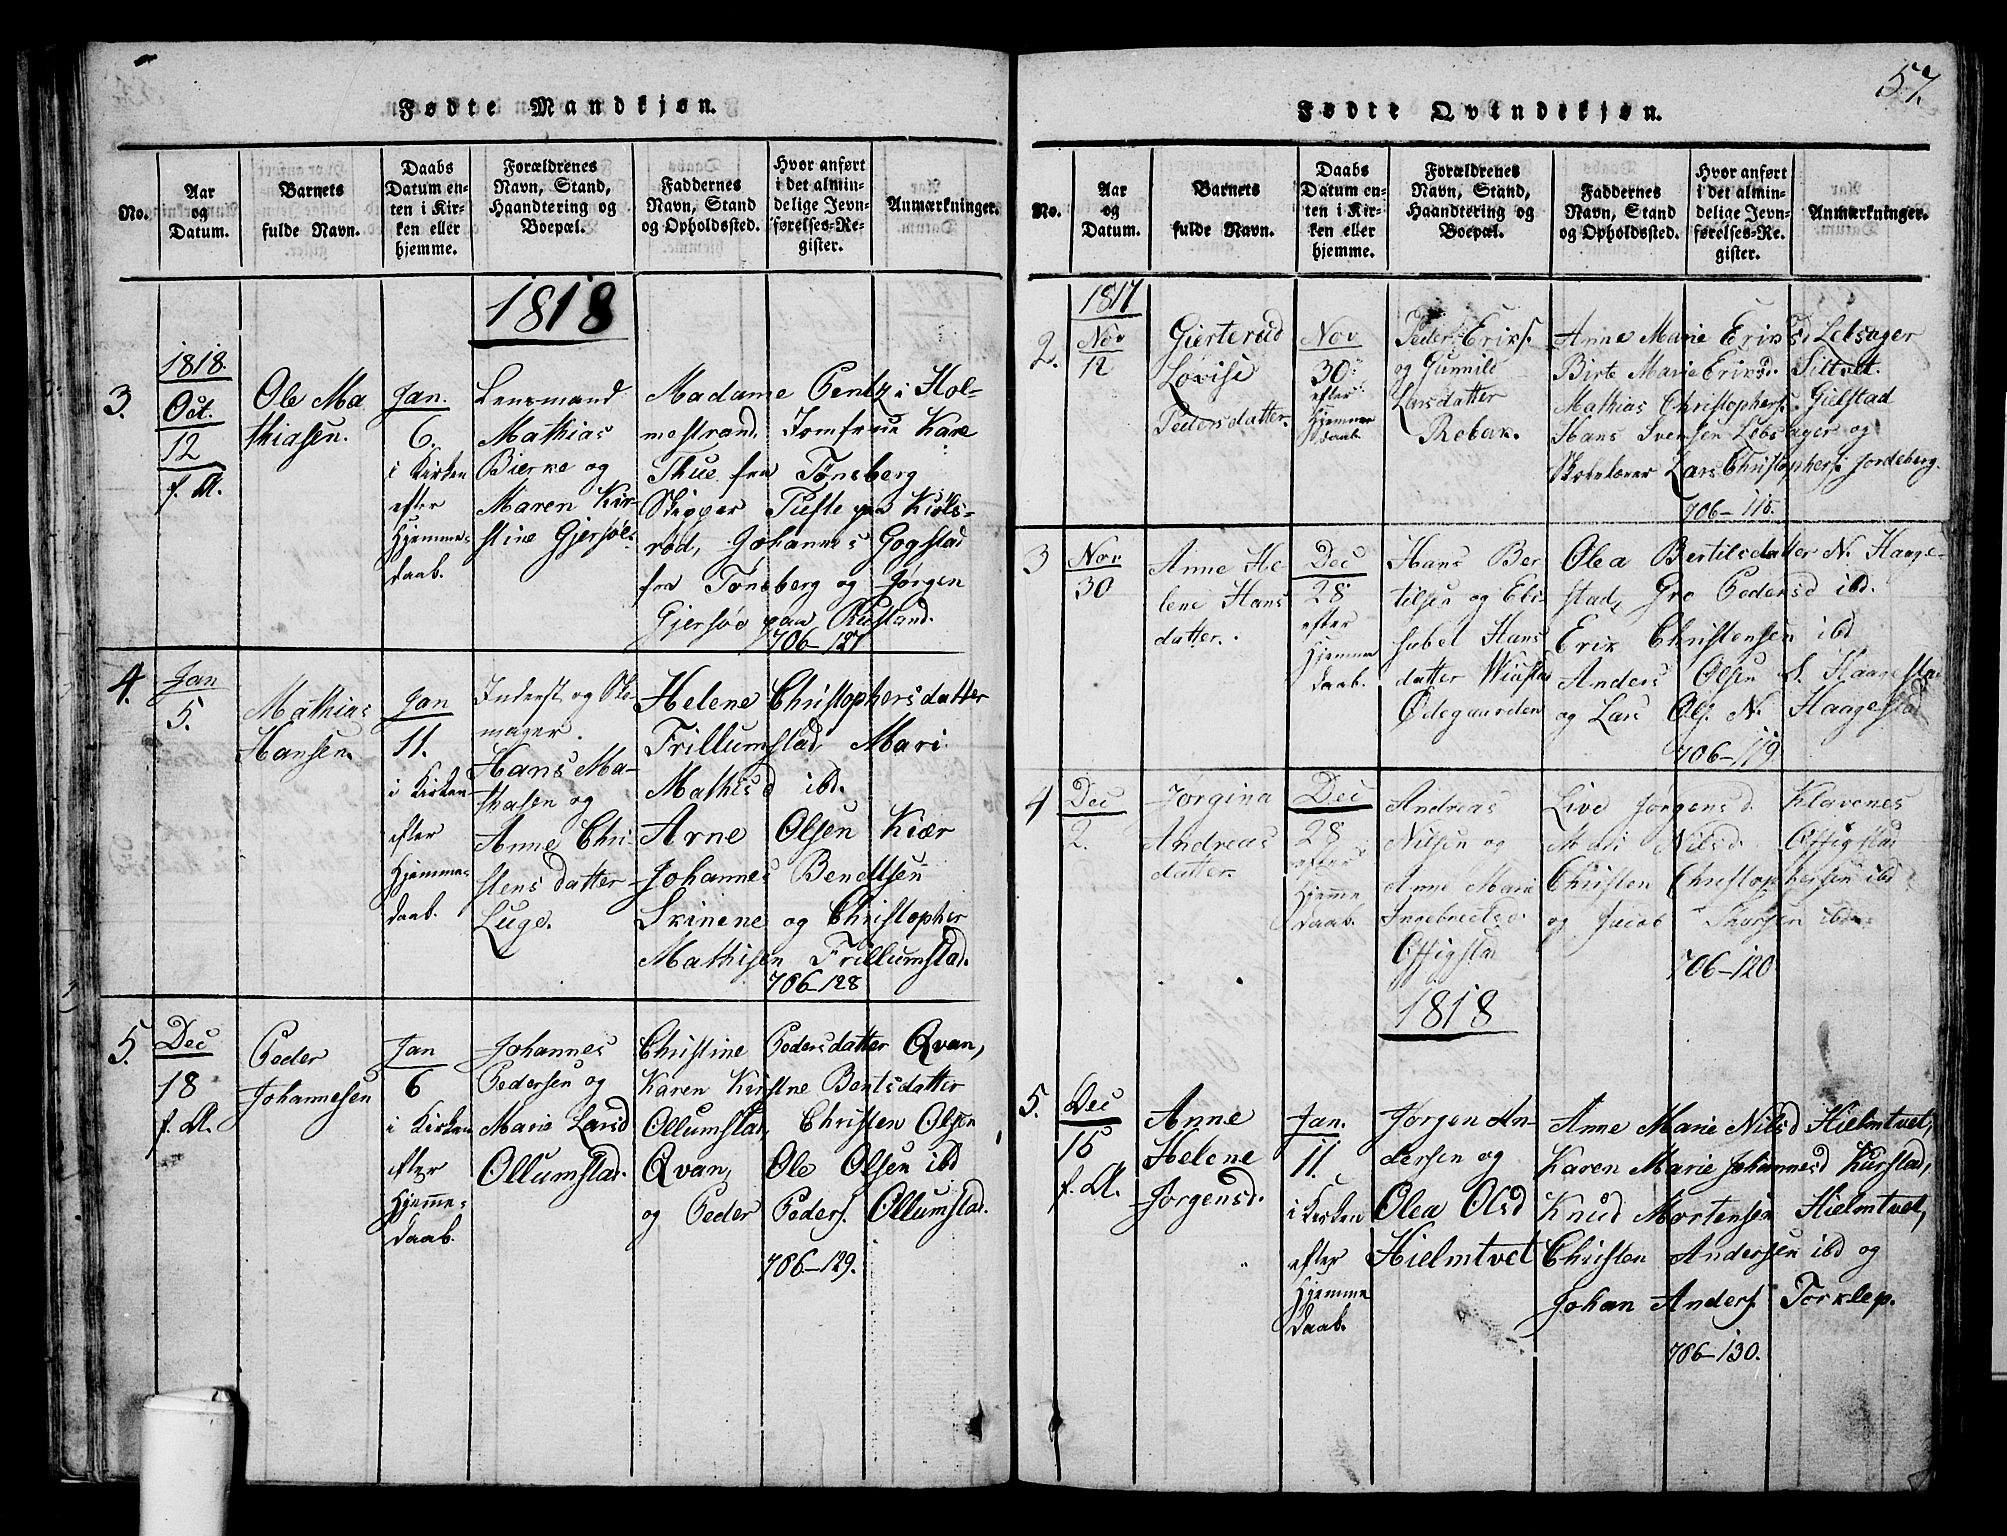 57.
Fødte Mandkjøn.
No.
Aar og Datum.
Barnets fulde Navn.
Daabs Datum enten i Kirken eller hjemme.
Forældrenes Navn, Stand, Haandtering og Boepæl.
Faddernes Navn, Stand og Opholdssted.
Hvor anført i det almindelige Jevnførelses-Register.
Anmærkninger.
1818
3.
1818.
Oct.
12
f. A.
Ole Ma
thiasen.
Jan.
6.
i Kirken
efter
Hjemme-
daab.
Lensmand
Mathias
Bierke og
Maren Kir-
stine Gjersøe.
Madame Pentz i Hol-
mestrand, Jomfrue Kare
Thue fra Tønsberg
Skipper Tufte paa Kiøls-
rød, Johannes Gogstad
fra Tønsberg og Jørgen
Gjersøe paa Rustand.
706-127
4.
Jan
5.
Mathias
Hansen.
Jan
11.
i Kirken
efter
Hjemme-
daab.
Inderst og Sko
mager.
Hans Ma-
thasen og
Anne Chri-
stensdatter
Luge.
Helene Christophersdatter
Trillumstad, Mari
Mathisd ibd.
Arne Olsen Kiær
Johannes Bendtsen
Skinene og Christopher
Mathisen Trillumstad.
706-128
5.
Dec
18
f. A.
Peder
Johannesen
Jan
6
i Kirken
efter
Hjemme-
daab.
Johannes
Pedersen og
Marie Larsd
Ollumstad.
Christine Pedersdatter Qvan,
Karen Kirstne Bentsdatter
Ollumstad, Christen Olsen
Qvan, Ole Olsen ibd
og Peder Peders. Ollumstad.
706-129.
Fødte Qvindekjøn.
No.
Aar og Datum.
Barnets fulde Navn.
Daabs Datum enten i Kirken eller hjemme.
Forældrenes Navn, Stand, Haandtering og Boepæl.
Faddernes Navn, Stand og Opholdssted.
Hvor anført i det almindelige Jevnførelses-Register.
Anmærkninger.
2.
1817
Nov
12
Gierterud
Lovise
Pedersdatter.
Nov
30
efter
Hjemme
daab.
Peder Eriks.
og Gunnild
Larsdatter
Rebak.
Anne Marie Eriksd Lebsager
Birte Marie Eriksd. Siltvet.
Mathias Christophers. Gielstad
Hans Svensen Lebsager og
Skolelærer Lars Christophers. Jordeberg.
706-118.
3
Nov
30
Anne He
lene Hans
datter.
Dec
28
efter
Hjemme
daab.
Hans Ber
tilsen og Eli
sabet Hans
datter Wiustad
Ødegaarden
Olea Bertilsdatter N. Haage-
stad, Gro Pedersd ibd.
Erik Christensen ibd
Anders Olsen S. Haagestad
og Lars Ols. N. Haagestad
706-119
4
Dec
2.
Jorgina
Andreas
datter.
Dec
28
efter
Hjemme
daab.
Andreas
Nilsen og
Anne Marie
Ingebretsd.
Offigstad
Live Jorgensd. Klavenes
Mari Nilsd. Offigstad
Christen Christophersen ibd
og Jacob Thorsen ibd.
706-120
1818
5.
Dec
16
f. A.
Anne
Helene
Jorgensd.
Jan.
11.
i Kirken
efter
Hjemme
daab.
Jorgen An-
dersen og
Olea Olsd
Hielmtvet
Anne Marie Nilsd Hielmtvet,
Karen Marie Johannesd Kurstad,
Knud Mortensen Hielmtvet,
Christen Andersen ibd og
Johan Anders. Torklep.
706-130.